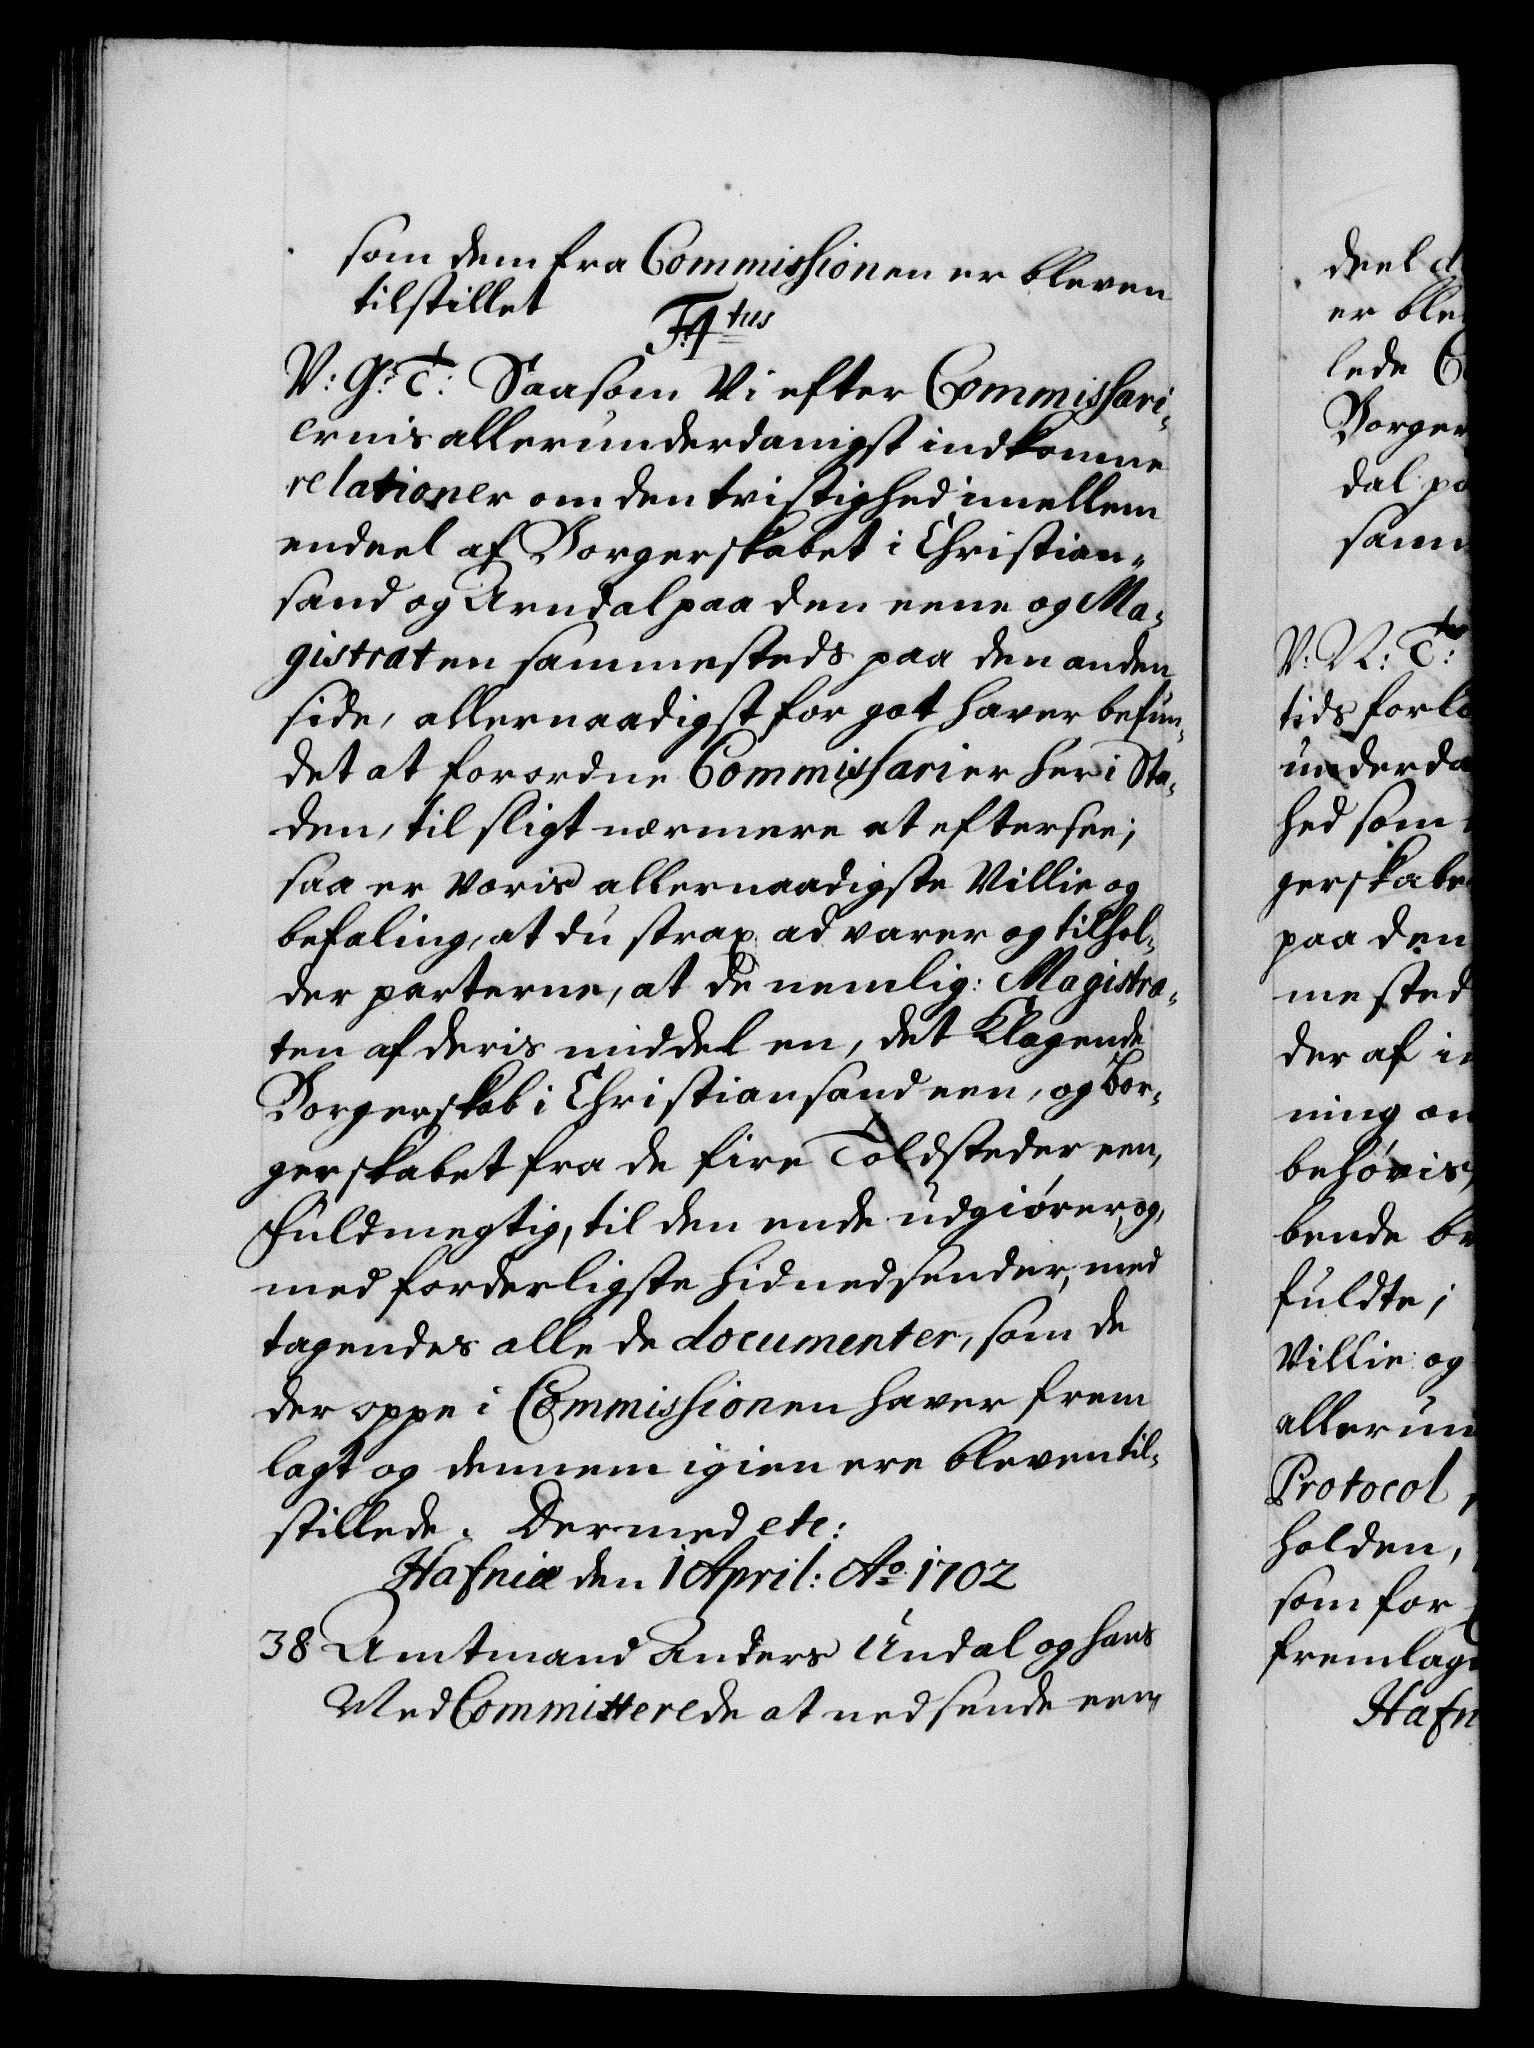 som dem fra Commissionen er bleven
tilstillet
F. 4tus
V: G: T: Saasom Vi efter Commissari-
ernis allerunderdanigst indkomne
relationer om den tvistighed imellem
endeel af Borgerskabet i Christian-
sand og Arndal paa den eene og Ma-
gistraten sammesteds paa den anden
side, allernaadigst for got haver befun-
det at forordne Commissarier her i Sta-
den, til sligt nærmere at eftersee;
saa er Voris allernaadigste Villie og
befaling, at du strax advarer og tilhol-
der parterne, at de nemlig: Magistra-
ten af deris middel en, det Klagende
Borgerskab i Christiansand een, og bor-
gerskabet fra de fire Toldsteder een,
Fuldmegtig, til den ende udgiører, og,
med forderligste hidnedsender, med
tagendes alle de documenter, som de
der oppe i Commissionen haver frem
lagt og dennem igien ere bleven til-
stillede. Dermed etc:
Hafniæ den 1 April: Ao 1702
38 Amtmand Anders Undal og hans
Med Committerede at nedsende een
deel d
er ble
lede C
Borger
dal pa
sam
V: N: T:
tids forlø
underda
hed som
gerskabe
paa den
mested
der af i
ning om
behøvis,
bende be
fuldte;
Villie og
allerun
Protocol
holden,
som for
fremlag
Hafn